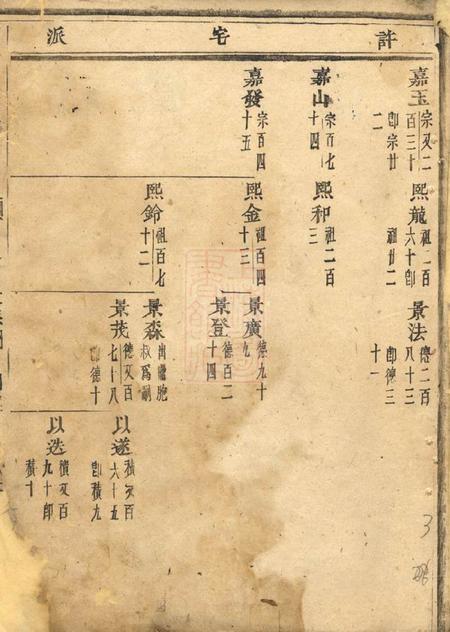 許宅派
嘉玉 宗又二百三十二 即宗廿
嘉山 宗百七十四
嘉發 宗百四十五
熙龍 祖二百六十即祖廿二
熙和 祖二百三
熙金 祖百四十三
熙鈴 祖百七十二
景法 德二百八十三 即德三十一
景廣 德九十九
景登 德百二十四
景森 出繼胞叔爲嗣
景茂 德又百七十八 即德十
以遂 積又百六十五 即積九
以迭 積又百九十即積十
3